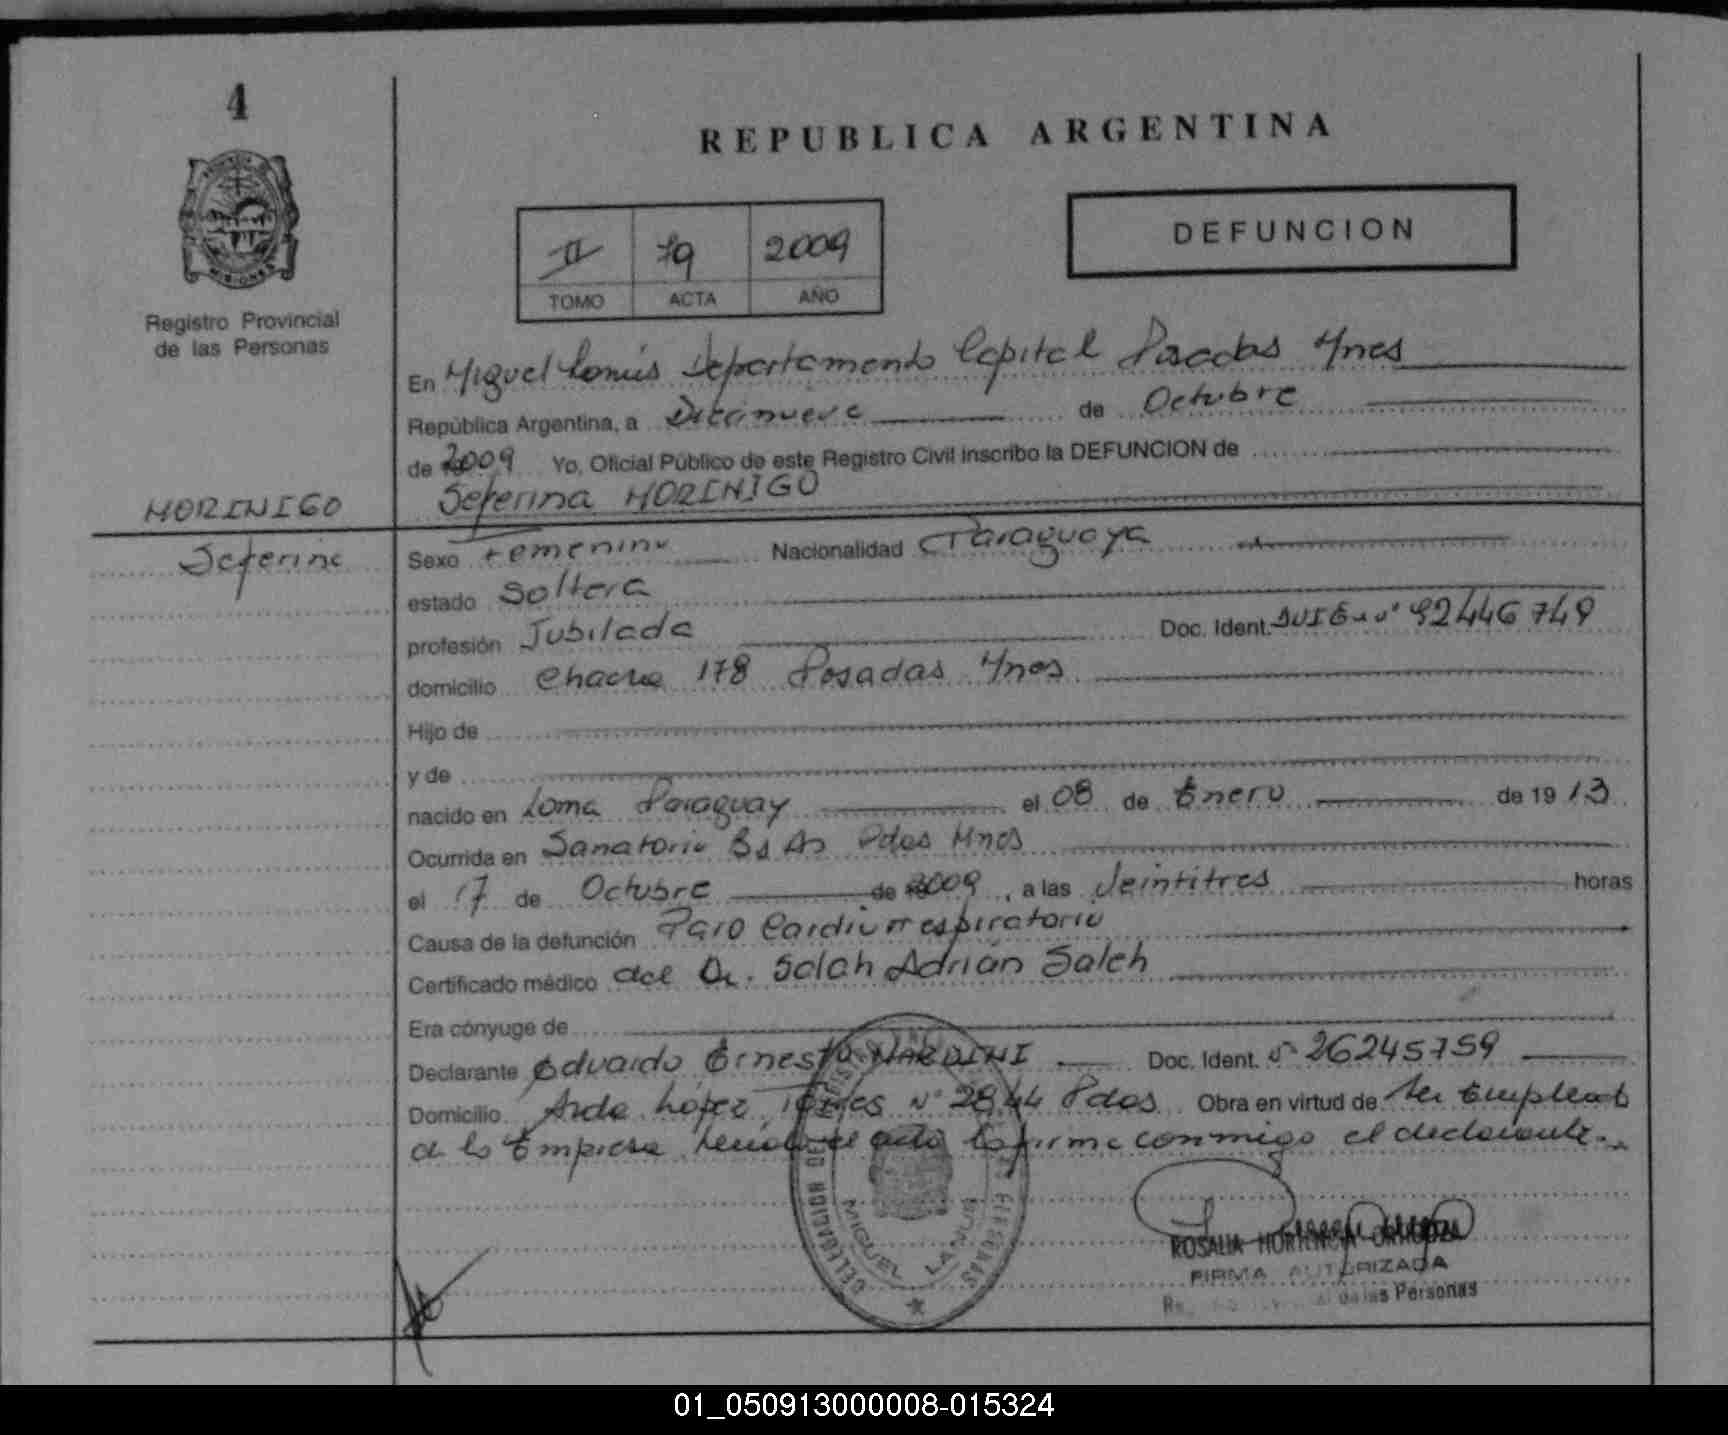 4
REPUBLICA ARGENTINA
MISIONES
Registro Provincial
de las Personas
II 79 2009
TOMO ACTA AÑO
DEFUNCION
En Miguel Lanús Departamento Capital Posadas Mnes
República Argentina, a Diecinueve de Octubre
de 2009 Yo, Oficial Público de este Registro Civil inscribo la DEFUNCION de
Seferina MORINIGO
MORINIGO
Seferina
Sexo Femenino Nacionalidad Paraguaya
estado Soltera
profesión Jubilada Doc. Ident. Nº 92446749
domicilio Chacra 178 Posadas Mnes
Hijo de
y de
nacido en Loma Paraguay el 08 de Enero de 1913
Ocurrida en Sanatorio Bs As Pdas Mnes
el 17 de Octubre de 2009, a las Veintitres horas
Causa de la defunción Paro Cardiorrespiratorio
Certificado médico del Dr. Salah Adrián Saleh
Era cónyuge de
Declarante Eduardo Ernesto NARDINI Doc. Ident. Nº 26245759
Domicilio Avda López Torres Nº 2844 Pdas Obra en virtud de ser Empleado
de la Empresa acta la firma conmigo el declarante.-
DELEGACION DEL REGISTRO DE LAS PERSONAS
MIGUEL LANUS
ROSALIA HORTENCIA
FIRMA AUTORIZADA
de las Personas
01_050913000008-015324